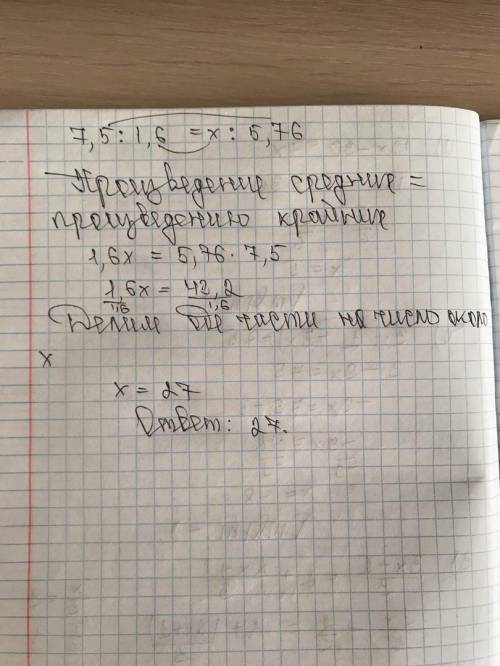 7,5 : 1,6 = x : 5,76
Произведение средние =
произведению крайние
1,6x = 5,76 · 7,5
1,6x = 43,2
1,6 1,6
Делим обе части на число около
x
x = 27
Ответ: 27.